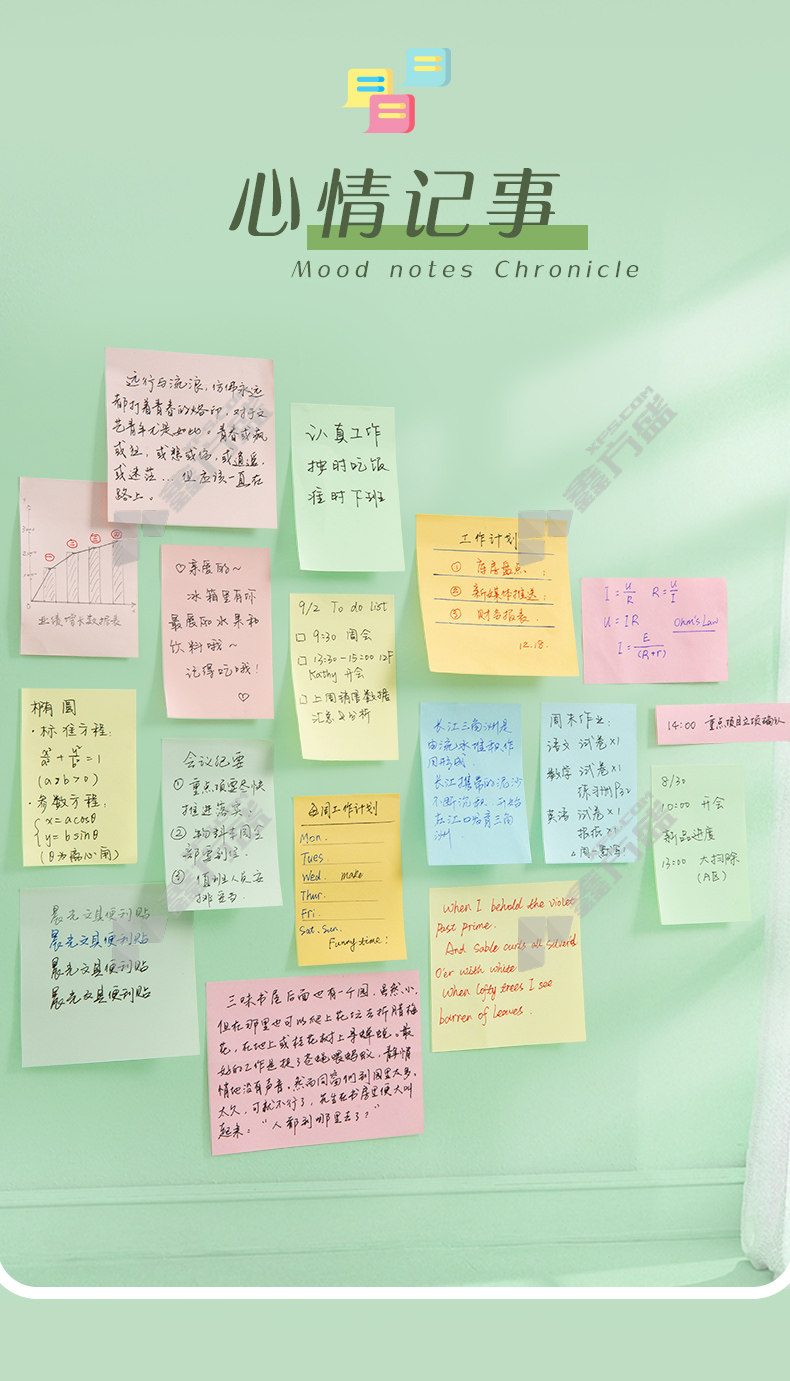 心情记事
Mood notes Chronicle
远行与流浪，仿佛永远
都打着青春的烙印，对于文
艺青年尤是如此。青春或疯
或狂，或悲或伤，或逍遥，
或迷茫...但应该一直在
路上。
认真工作
按时吃饭
准时下班
业绩增长数据表
♡亲爱的~
冰箱里有你
最爱的水果和
饮料哦~
记得吃哦!
♡
9/2 To do list
□ 9:30 周会
□ 13:30-15:00 12F
Kathy 开会
□ 上周销售数据
汇总与分析
工作计划
① 库房盘点.
② 新媒体推送.
③ 财务报表.
12.18.
I = U/R R = U/I
U = IR Ohm's Law
I = E/(R+r)
椭圆
·标准方程:
x²/a² + y²/b² = 1
(a>b>0)
·参数方程:
{x=acosθ
{y=bsinθ
(θ为离心角)
会议纪要
① 重点项要尽快
推进落实.
② 物料本周全
部要到位.
③ 值班人员安
排妥当
每周工作计划
Mon.
Tues
Wed. make
Thur.
Fri.
Sat. Sun.
Funny time:
长江三角洲是
由流水堆积作
用形成
长江携带的泥沙
不断沉积,开始
在江口培育三角
洲.
周末作业:
语文 试卷×1
数学 试卷×1
练习册P32
英语 试卷×1
报纸×1
14:00 重点项目立项确认
8/30
10:00 开会
新品进度
13:00 大扫除
(A区)
晨光文具便利贴
晨光文具便利贴
晨光文具便利贴
晨光文具便利贴
When I behold the violet
Past prime.
And sable curls all silver'd
O'er with white
When lofty trees I see
barren of leaves.
三味书屋后面也有一个园，虽然小，
但在那里也可以爬上花坛去折腊梅
花，在地上或桂花树上寻蝉蜕。最
好的工作是捉了苍蝇喂蚂蚁，静悄
悄地没有声音。然而同窗们到园里太多，
太久，可就不行了，先生在书房里便大叫
起来：“人都到哪里去了？”
鑫方盛
XFS.COM